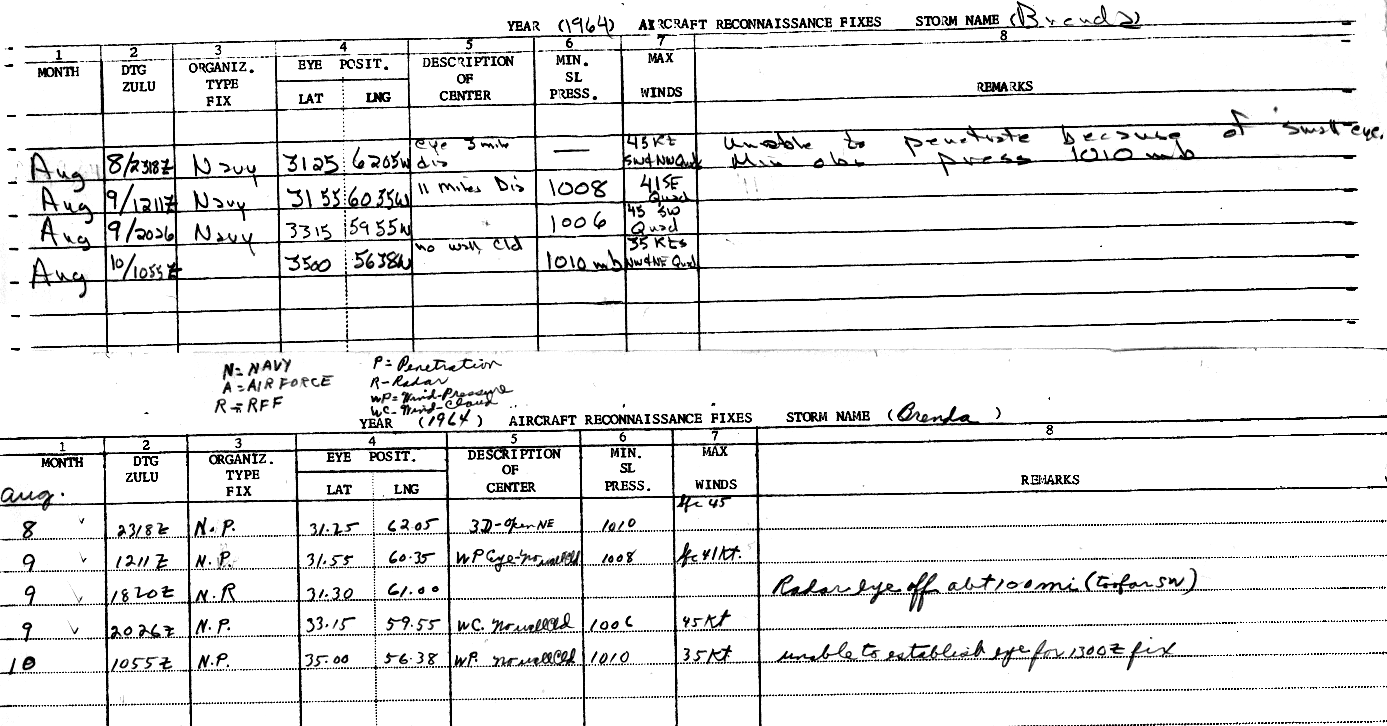 YEAR (1964) AIRCRAFT RECONNAISSANCE FIXES STORM NAME (Brenda)
1 2 3 4 5 6 7 8
MONTH DTG ZULU ORGANIZ. TYPE FIX EYE POSIT. LAT LNG DESCRIPTION OF CENTER MIN. SL PRESS. MAX WINDS REMARKS
Aug 8/2318Z Navy 3125 6205W eye 3 mile dis — 45 Kt SW & NW Quad Unable to penetrate because of small eye. Min obs press 1010 mb
Aug 9/1211Z Navy 3155 6035W 11 miles Dis 1008 41 SE Quad
Aug 9/2026 Navy 3315 5955W 1006 45 SW Quad
Aug 10/1055Z 3500 5638W no wall cld 1010 mb 35 Kts NW & NE Quad
N = NAVY P = Penetration
A = AIR FORCE R - Radar
R = RFF WP = Wind-Pressure
WC - Wind-Cloud
YEAR (1964) AIRCRAFT RECONNAISSANCE FIXES STORM NAME (Brenda)
1 2 3 4 5 6 7 8
MONTH DTG ZULU ORGANIZ. TYPE FIX EYE POSIT. LAT LNG DESCRIPTION OF CENTER MIN. SL PRESS. MAX WINDS REMARKS
Aug.
8 2318Z N.P. 31.25 62.05 3D-Open NE 1010 sfc 45
9 1211Z N.P. 31.55 60.35 WP Eye-No wall cld 1008 sfc 41 Kt.
9 1820Z N.R 31.30 61.00 Radar eye off abt 100 mi (too far SW)
9 2026Z N.P. 33.15 59.55 WC. No wall Cld 1006 45 Kt
10 1055Z N.P. 35.00 56.38 WP. No wall Cld 1010 35 Kt unable to establish eye for 1300Z fix